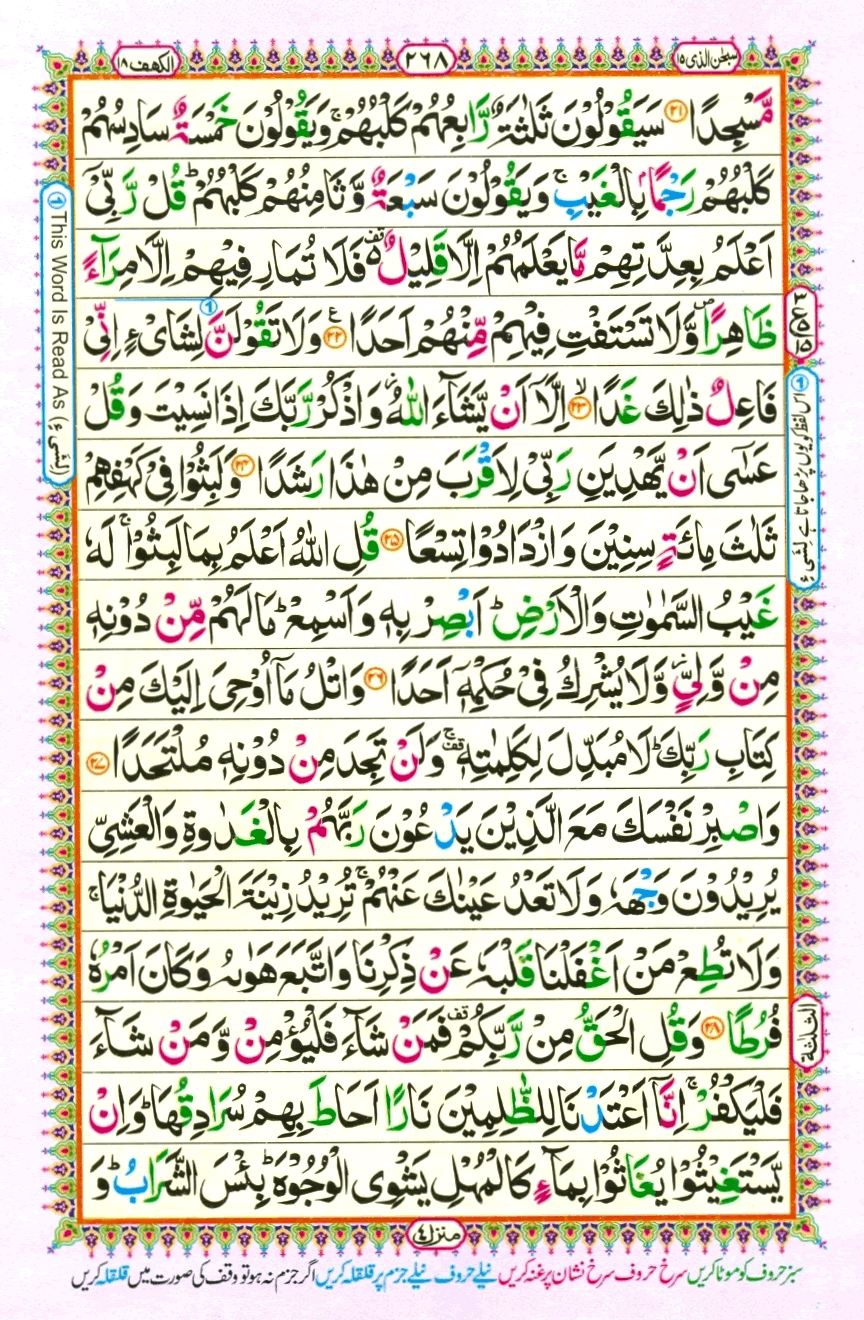 سبحٰن الذی ۱۵
۲۶۸
الکهف ۱۸
مَّسْجِدًا ۲۱ سَيَقُوْلُوْنَ ثَلٰثَةٌ رَّابِعُهُمْ كَلْبُهُمْ ۚ وَيَقُوْلُوْنَ خَمْسَةٌ سَادِسُهُمْ
كَلْبُهُمْ رَجْمًۢا بِالْغَيْبِ ۚ وَيَقُوْلُوْنَ سَبْعَةٌ وَّثَامِنُهُمْ كَلْبُهُمْ ؕ قُلْ رَّبِّىْۤ
اَعْلَمُ بِعِدَّتِهِمْ مَّا يَعْلَمُهُمْ اِلَّا قَلِيْلٌ ۵ قف فَلَا تُمَارِ فِيْهِمْ اِلَّا مِرَآءً
ظَاهِرًا ص وَّلَا تَسْتَفْتِ فِيْهِمْ مِّنْهُمْ اَحَدًا ع ۲۲ وَلَا تَقُوْلَنَّ لِشَاىْءٍ اِنِّىْ
فَاعِلٌ ذٰلِكَ غَدًا ۙ ۲۳ اِلَّاۤ اَنْ يَّشَآءَ اللّٰهُ ؗ وَاذْكُرْ رَّبَّكَ اِذَا نَسِيْتَ وَقُلْ
عَسٰٓى اَنْ يَّهْدِيَنِ رَبِّىْ لِاَقْرَبَ مِنْ هٰذَا رَشَدًا ۲۴ وَلَبِثُوْا فِىْ كَهْفِهِمْ
ثَلٰثَ مِائَةٍ سِنِيْنَ وَازْدَادُوْا تِسْعًا ۲۵ قُلِ اللّٰهُ اَعْلَمُ بِمَا لَبِثُوْا ۚ لَهٗ
غَيْبُ السَّمٰوٰتِ وَالْاَرْضِ ؕ اَبْصِرْ بِهٖ وَاَسْمِعْ ؕ مَا لَهُمْ مِّنْ دُوْنِهٖ
مِنْ وَّلِىٍّ ؗ وَّلَا يُشْرِكُ فِىْ حُكْمِهٖۤ اَحَدًا ۲۶ وَاتْلُ مَاۤ اُوْحِىَ اِلَيْكَ مِنْ
كِتَابِ رَبِّكَ ؕ لَا مُبَدِّلَ لِكَلِمٰتِهٖ ۚ قف وَلَنْ تَجِدَ مِنْ دُوْنِهٖ مُلْتَحَدًا ۲۷
وَاصْبِرْ نَفْسَكَ مَعَ الَّذِيْنَ يَدْعُوْنَ رَبَّهُمْ بِالْغَدٰوةِ وَالْعَشِىِّ
يُرِيْدُوْنَ وَجْهَهٗ وَلَا تَعْدُ عَيْنٰكَ عَنْهُمْ ۚ تُرِيْدُ زِيْنَةَ الْحَيٰوةِ الدُّنْيَا ۚ
وَلَا تُطِعْ مَنْ اَغْفَلْنَا قَلْبَهٗ عَنْ ذِكْرِنَا وَاتَّبَعَ هَوٰىهُ وَكَانَ اَمْرُهٗ
فُرُطًا ۲۸ وَقُلِ الْحَقُّ مِنْ رَّبِّكُمْ قف فَمَنْ شَآءَ فَلْيُؤْمِنْ وَّمَنْ شَآءَ
فَلْيَكْفُرْ ۚ اِنَّاۤ اَعْتَدْنَا لِلظّٰلِمِيْنَ نَارًا اَحَاطَ بِهِمْ سُرَادِقُهَا ؕ وَاِنْ
يَّسْتَغِيْثُوْا يُغَاثُوْا بِمَآءٍ كَالْمُهْلِ يَشْوِى الْوُجُوْهَ ؕ بِئْسَ الشَّرَابُ ؕ وَ
منزل ۴
① This Word Is Read As (لِشَىْءٍ)
① اس لفظ کو یوں پڑھا جاتا ہے لِشَىْءٍ
الثلثة
سبز حروف کو موٹا کریں سرخ حروف سرخ نشان پر غنہ کریں نیلے حروف نیلے جزم پر قلقلہ کریں اگر جزم نہ ہو تو وقف کی صورت میں قلقلہ کریں